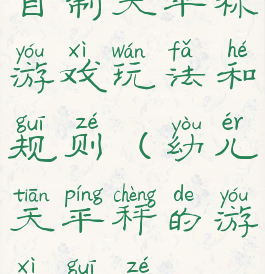 自制天平秤
yóu xì wán fǎ hé
游戏玩法和
guī zé yòu ér
规则（幼儿
tiān píng chèng de yóu
天平秤的游
xì guī zé